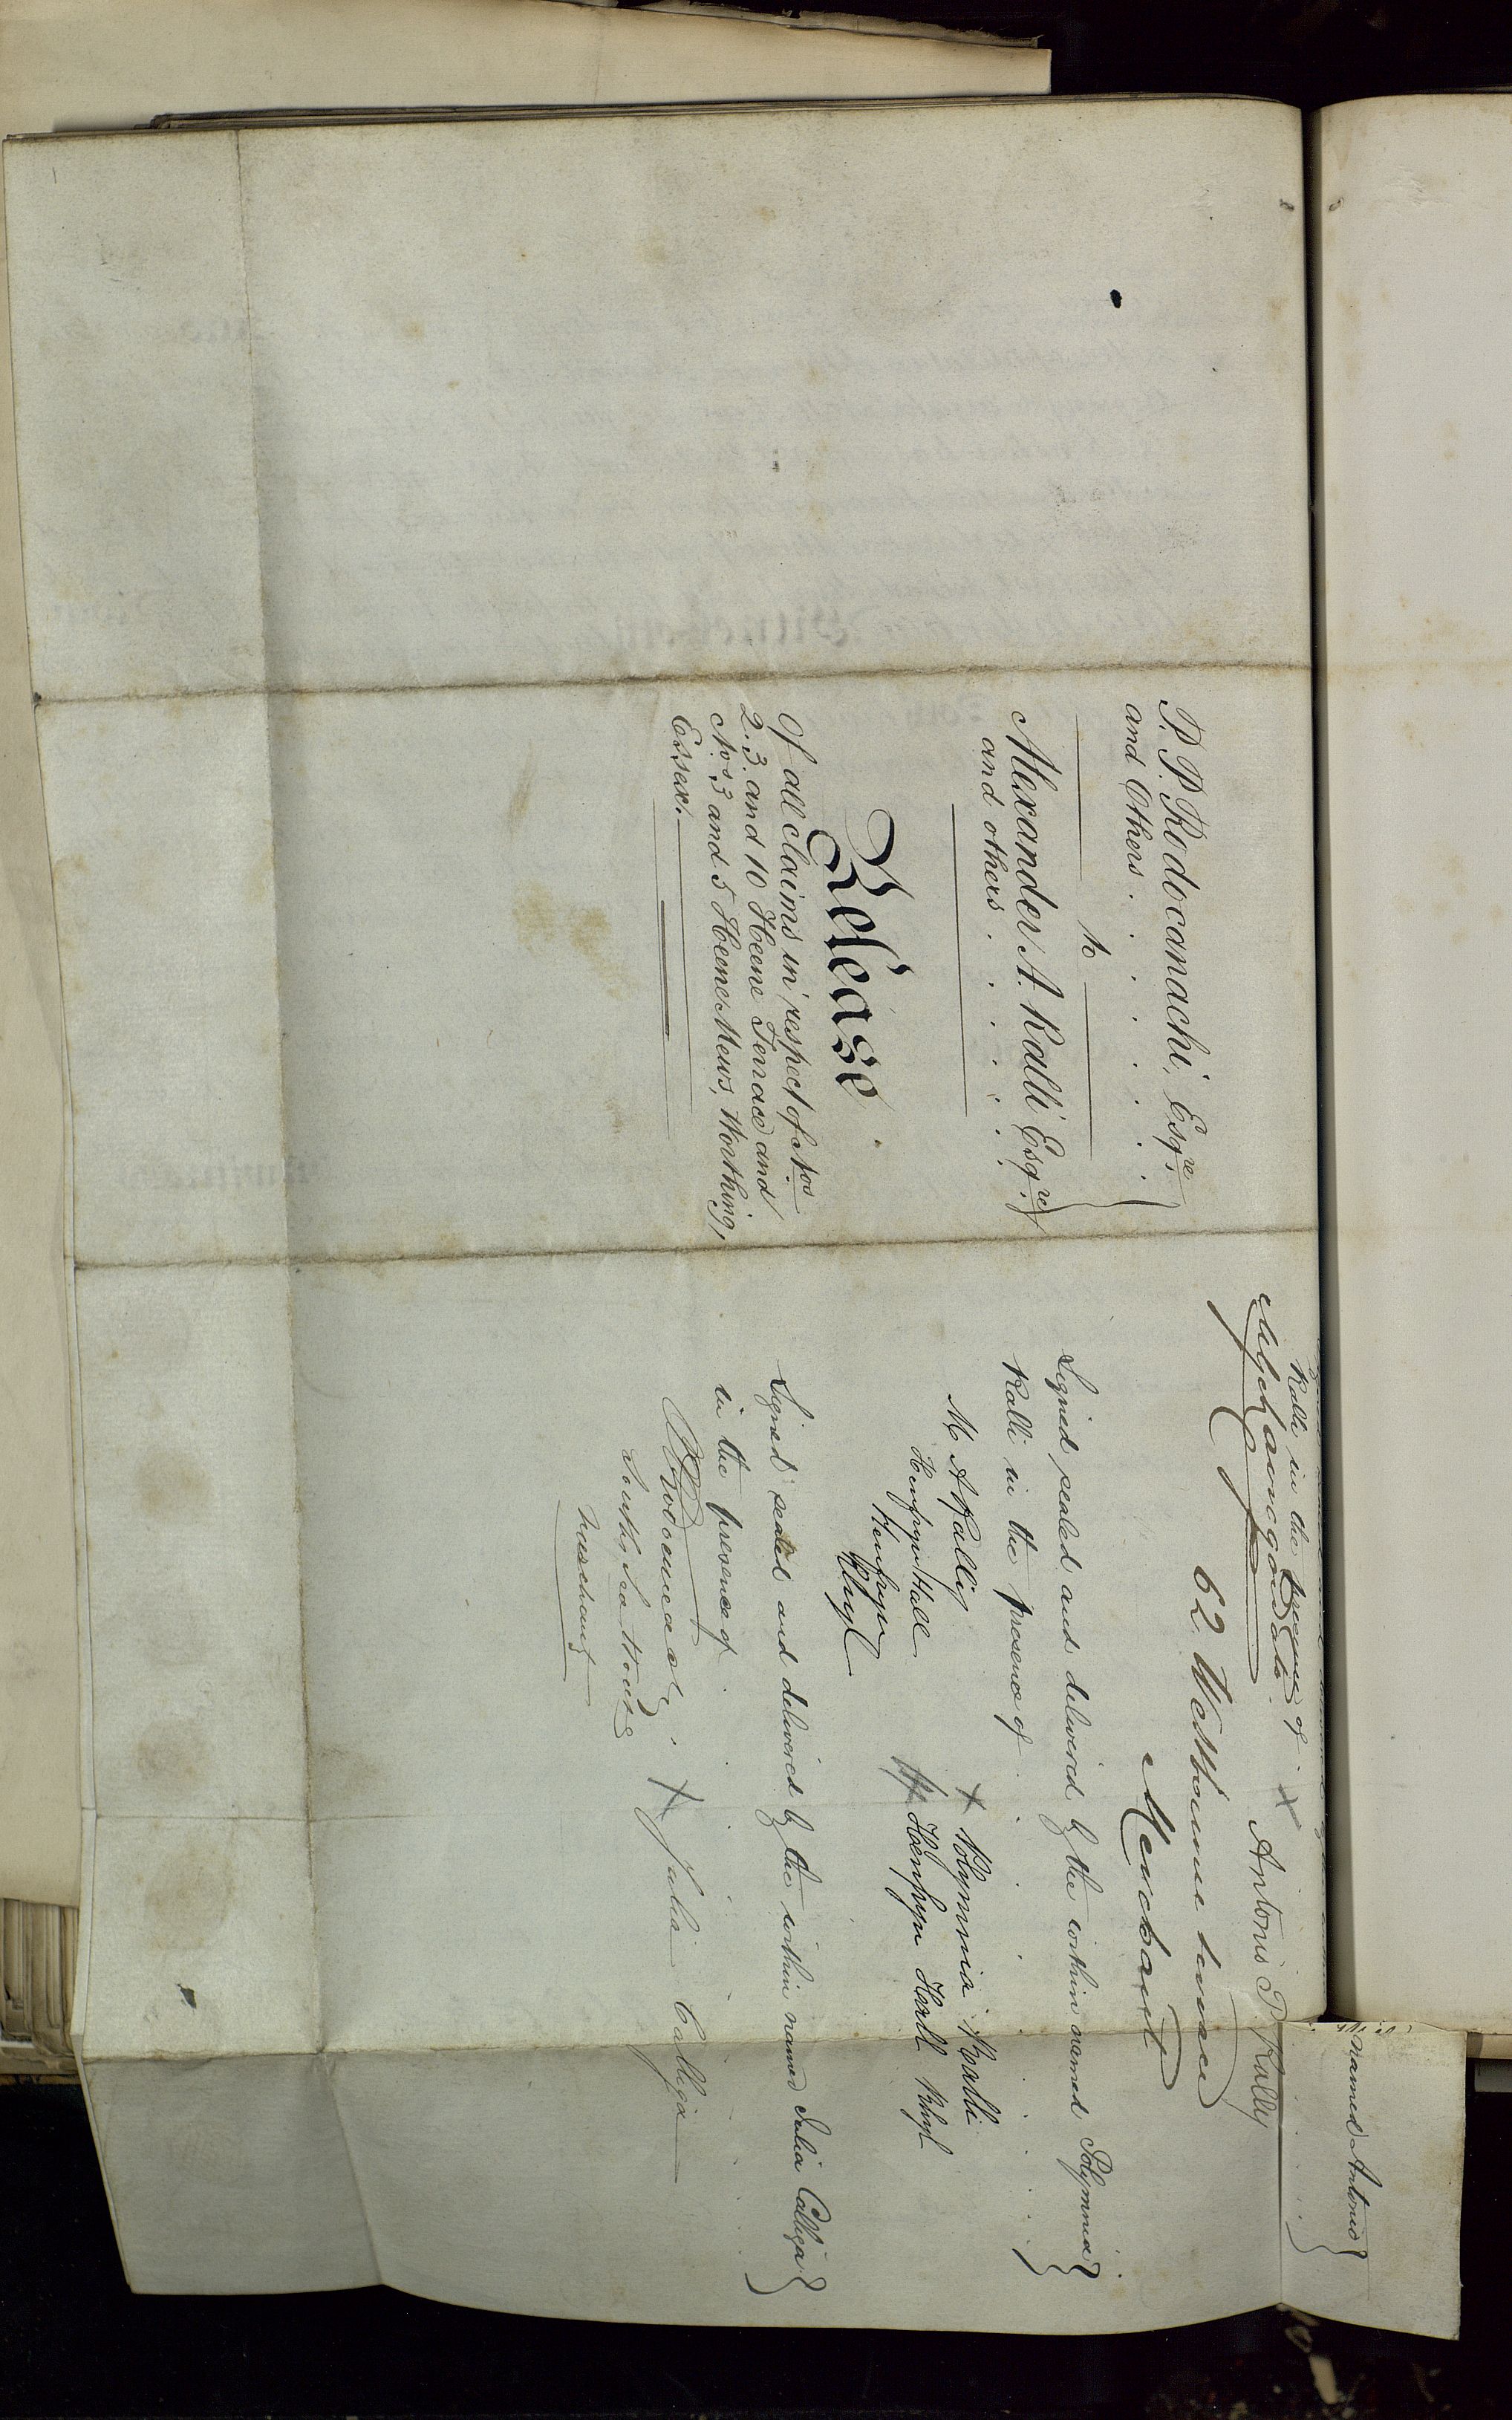 P. P. Rodocanachi, Esqre.
and Others
to
Alexander A. Ralli Esqre.
and others
Release
Of all claims in respect of Nos
2. 3. and 10 Heene Terrace and
Nos 3 and 5 Heene Mews, Worthing,
Essex.
named Antonio
Ralli in the presence of
Antonio P. Rally
62 Westbourne terrace
Merchant
Signed sealed and delivered by the within named Polymnia
Ralli in the presence of
M A Ralli
Henfryn Hall
Henfryn
Rhyl
Polymnia Ralli
Henfryn Hall Rhyl
Signed sealed and delivered by the within named Julia Calliga
in the presence of
Merchant
Julia Calliga